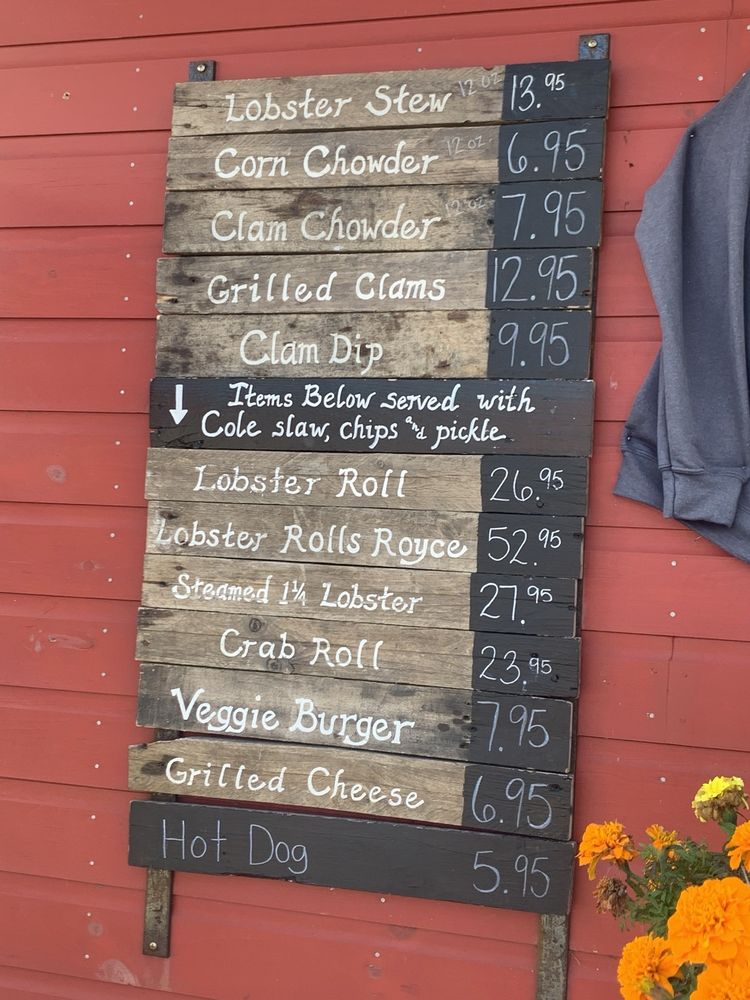 Lobster Stew 12 oz 13.95
Corn Chowder 12 oz. 6.95
Clam Chowder 12 oz 7.95
Grilled Clams 12.95
Clam Dip 9.95
↓ Items Below served with
Cole slaw, chips and pickle
Lobster Roll 26.95
Lobster Rolls Royce 52.95
Steamed 1¼ Lobster 27.95
Crab Roll 23.95
Veggie Burger 7.95
Grilled Cheese 6.95
Hot Dog 5.95